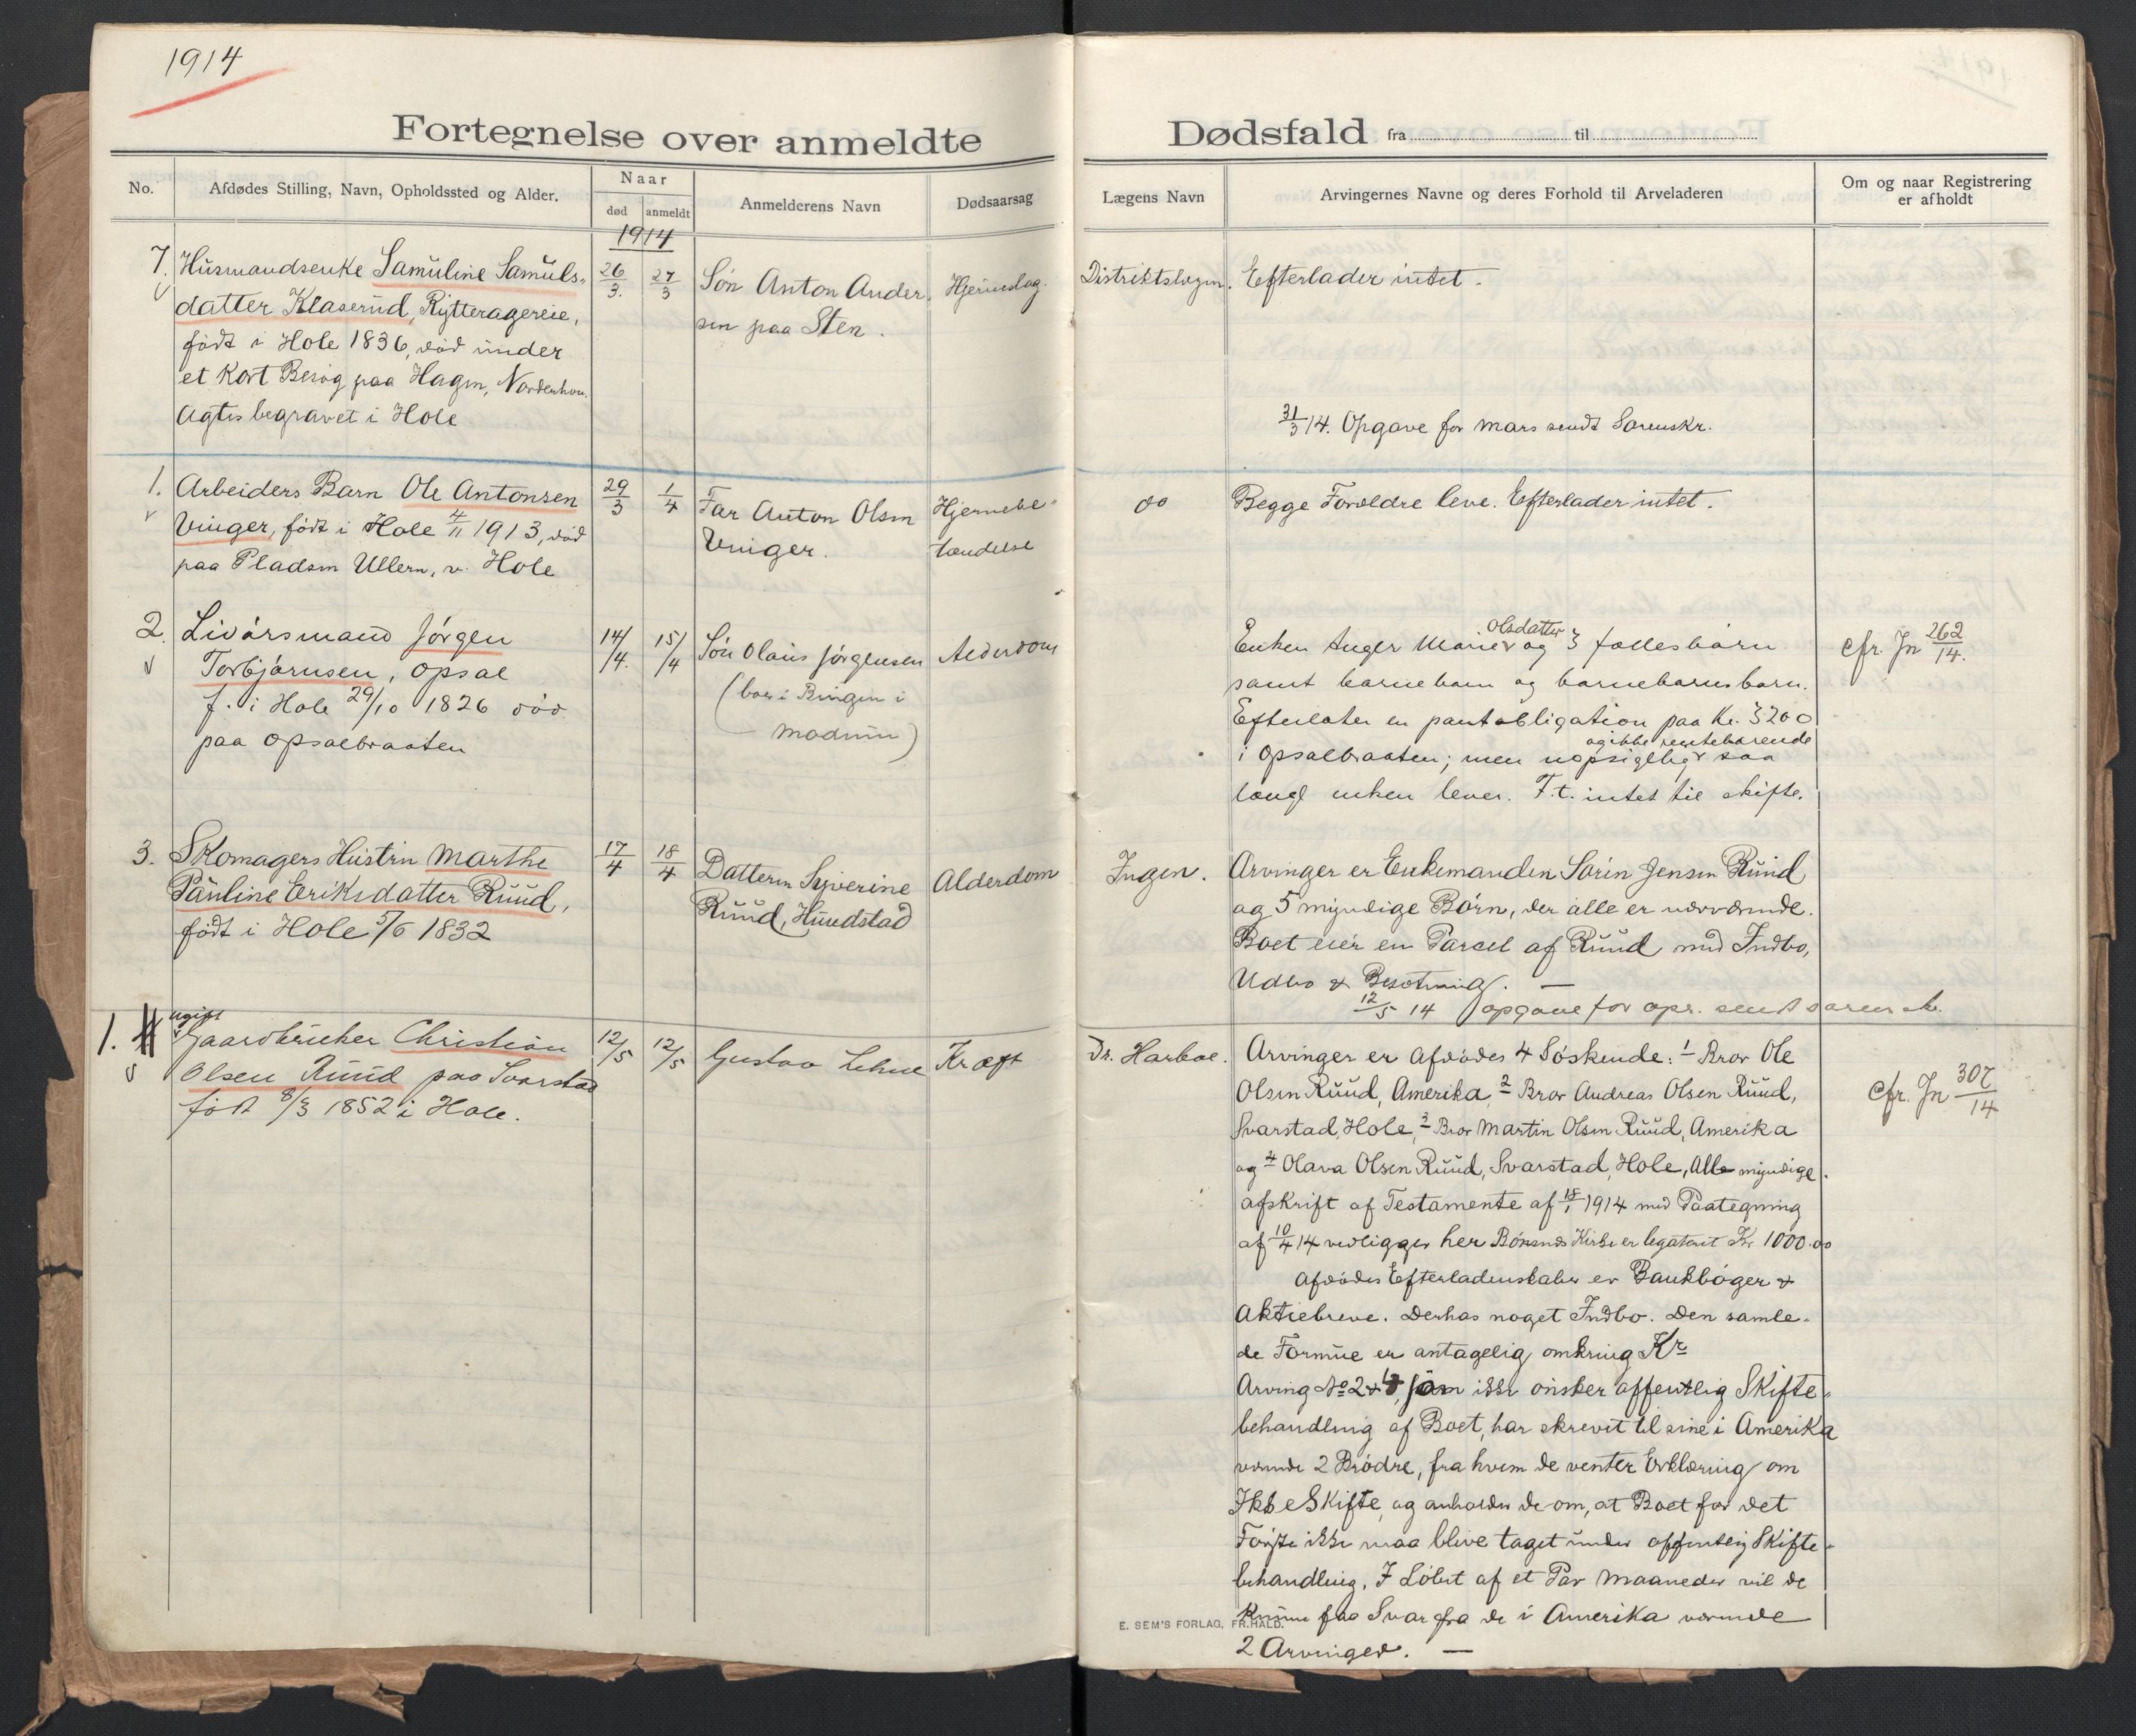 1914
Fortegnelse over anmeldte
No.
Afdødes Stilling, Navn, Opholdssted og Alder.
Naar
død
anmeldt
Anmelderens Navn
Dødsaarsag
1914
7.
Husmandsenke Samuline Samuls-
datter Klaserud, Rytteragereie,
født i Hole 1836, død under
et kort Besøg paa Hagen, Norderhov.
Agtes begravet i Hole
26/3.
27/3
Søn Anton Ander-
sen paa Sten.
Hjerneslag.
1.
Arbeiders Barn Ole Antonsen
Vinger, født i Hole 4/11 1913, død
paa Pladsen Ullern, v. Hole
29/3
1/4
Far Anton Olsen
Vinger.
Hjernebe-
tændelse
2.
Livørsmand Jørgen
Torbjørnsen, Opsal
f. i Hole 29/10 1826 død
paa Opsalbraaten
14/4.
15/4
Søn Olaus Jørgensen
(boer i Bingen i
Modum)
Alderdom
3.
Skomagers Hustru Marthe
Pauline Eriksdatter Ruud,
født i Hole 5/6 1832
17/4
18/4
Datteren Syverine
Ruud, Hundstad
Alderdom
1. 4
ugift
Gaardbruker Christian
Olsen Ruud paa Svarstad
født 8/3 1852 i Hole.
12/5
12/5
Gustav Lehne
Kræft
Dødsfald fra til
Lægens Navn
Arvingernes Navne og deres Forhold til Arveladeren
Om og naar Registrering
er afholdt
Distriktslægen.
Efterlader intet.
31/3 14. Opgave for mars sendt Sorenskr.
do
Begge Forældre leve. Efterlader intet.
Olsdatter
Enken Inger Marie og 3 fællesbørn
samt barnebarn og barnebarnsbarn.
Efterlater en pantobligation paa Kr. 3200
og ikke rentebærende
i Opsalbraaten; men uopsigelig saa
længe enken lever. F.t. intet til skifte.
cfr. Jn 262/14.
Ingen.
Arvinger er Enkemanden Sørin Jensen Ruud
og 5 myndige Børn, der alle er nærværende.
Boet eier en Parcel af Ruud med Indbo,
Udbo & Besætning. —
12/5 14 Opgave for apr. sendt sorenskr.
Dr. Harboe.
Arvinger er Afdødes 4 Søskende: 1 Bror Ole
Olsen Ruud, Amerika, 2 Bror Andreas Olsen Ruud,
Svarstad, Hole, 3 Bror Martin Olsen Ruud, Amerika
og 4 Olava Olsen Ruud, Svarstad, Hole, Alle myndige.
Afskrift af Testamente af 18/1 1914 med Paategning
af 10/4 14 vedligger her Bønsnes Kirke er legateret Kr 1000.00
Afdødes Efterladenskaber er Bankbøger &
Aktiebreve. Derhos noget Indbo. Den samle-
de Formue er antagelig omkring Kr
Arving No 2 & 4, som ikke ønsker offentlig Skifte-
behandling af Boet, har skrevet til sine i Amerika
værende 2 Brødre, fra hvem de venter Erklæring om
Ikke Skifte, og anholder de om, at Boet for det
Første ikke maa blive taget under offentlig Skifte-
behandling. I Løbet af et Par Maaneder vil de
Kunne faa Svar fra de i Amerika værende
2 Arvinger. —
cfr. Jn 307/14
E. SEM'S FORLAG, FR.HALD.